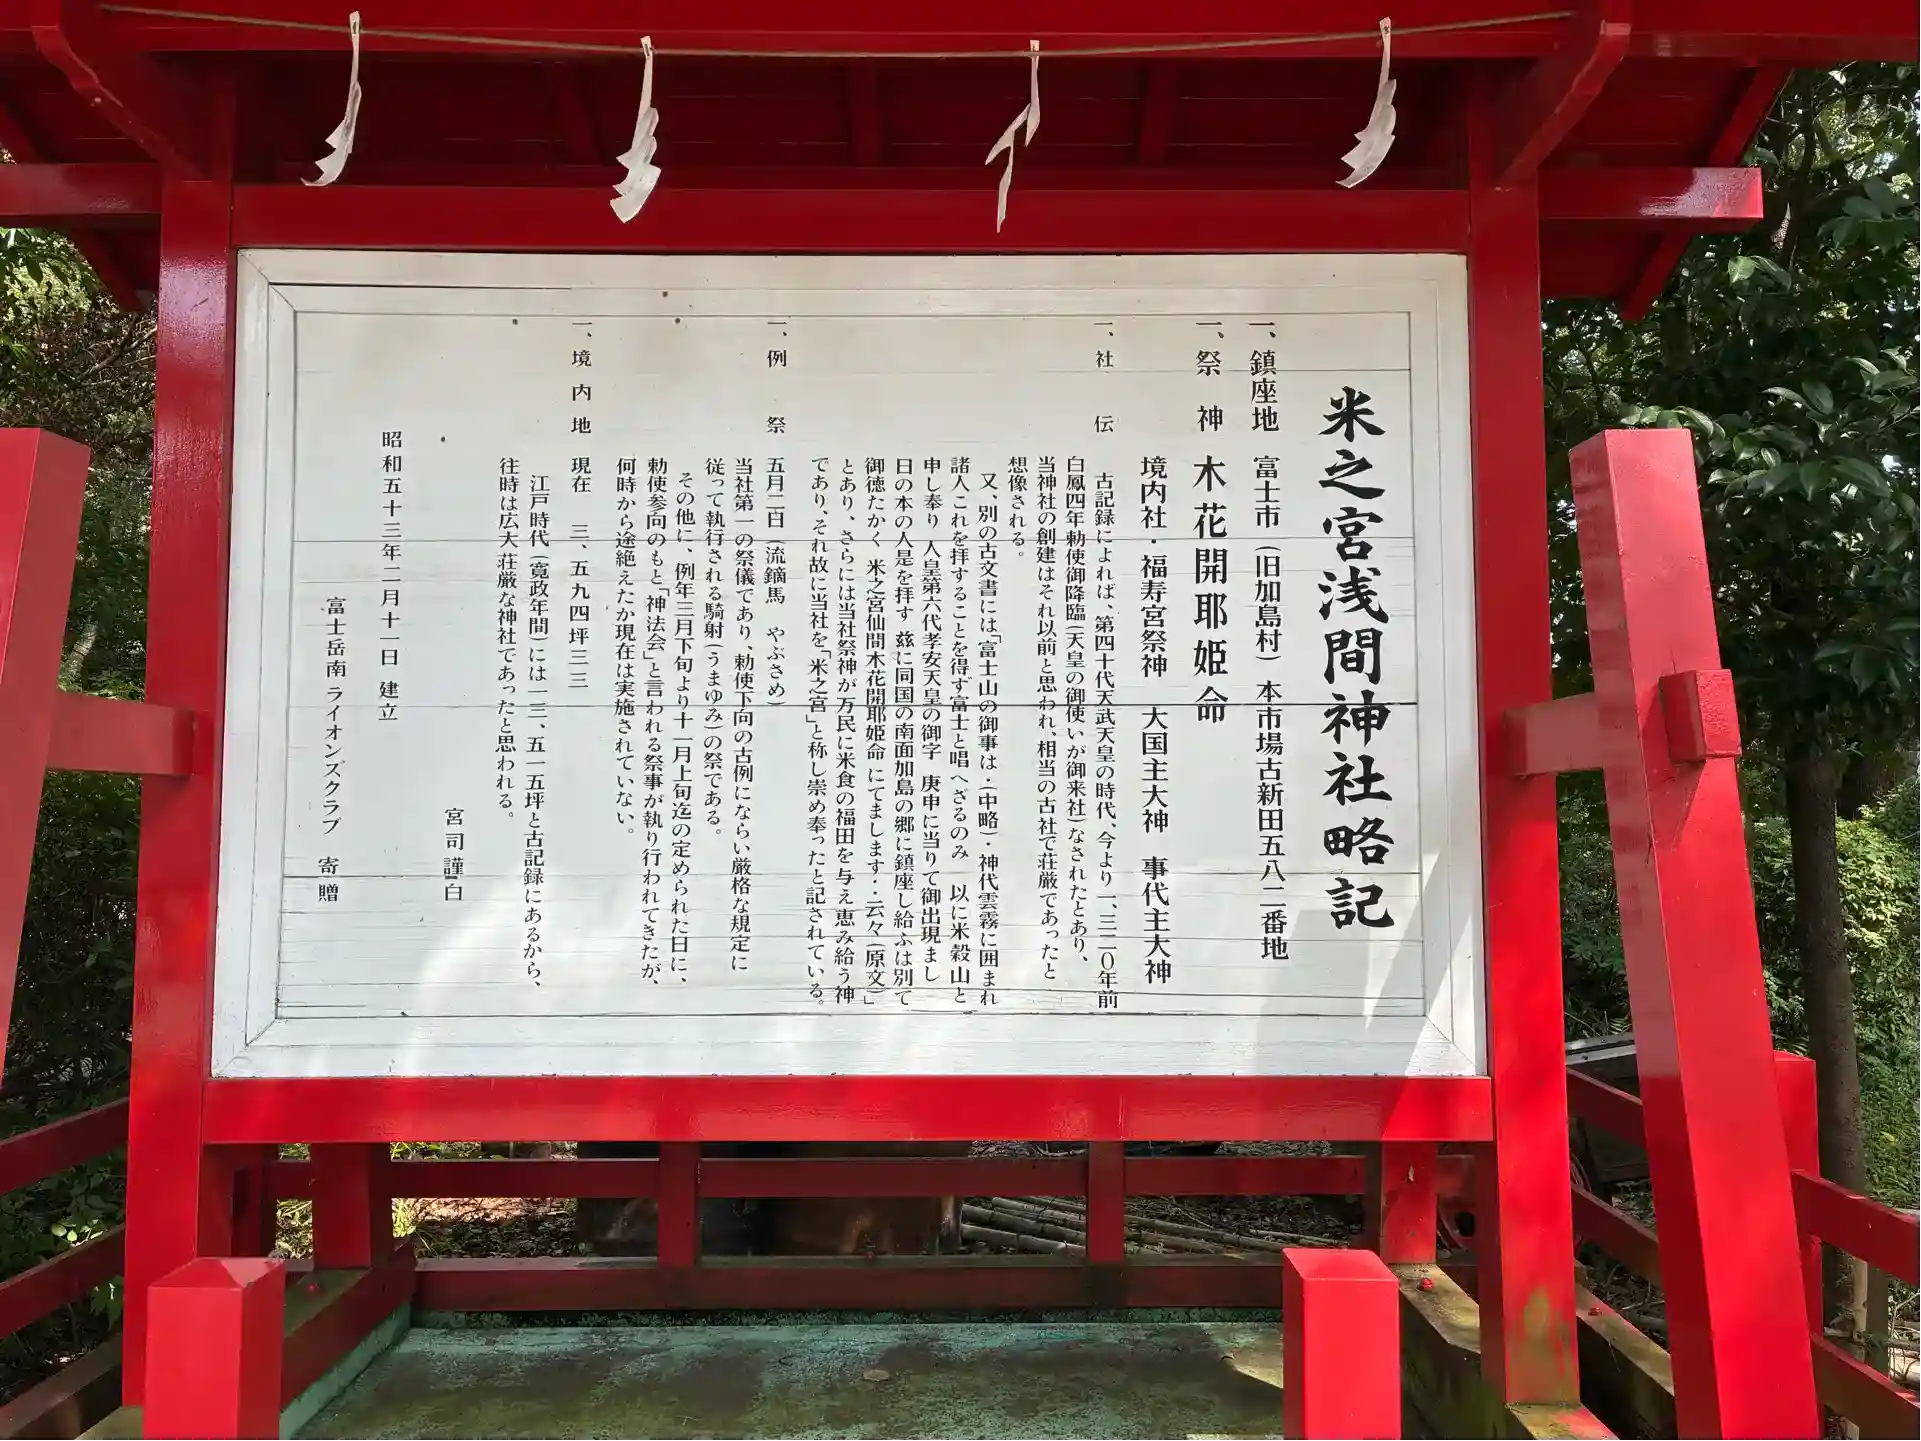 米之宮浅間神社略記
一、鎮座地 富士市(旧加島村)本市場古新田五八二番地
一、祭神 木花開耶姫命
境内社・福寿宮祭神 大国主大神 事代主大神
一、社伝 古記録によれば、第四十代天武天皇の時代、今より一、三二〇年前
白鳳四年勅使御降臨(天皇の御使いが御来社)なされたとあり、
当神社の創建はそれ以前と思われ、相当の古社で荘厳であったと
想像される。
又、別の古文書には「富士山の御事は・(中略)・神代雲霧に囲まれ
諸人これを拝することを得ず富士と唱へざるのみ 以に米穀山と
申し奉り 人皇第六代孝安天皇の御字 庚申に当りて御出現まし
日の本の人是を拝す 茲に同国の南面加島の郷に鎮座し給ふは別て
御徳たかく 米之宮仙間木花開耶姫命 にてまします・・云々(原文)」
とあり、さらには当社祭神が万民に米食の福田を与え恵み給う神
であり、それ故に当社を「米之宮」と称し崇め奉ったと記されている。
一、例祭 五月二日(流鏑馬 やぶさめ)
当社第一の祭儀であり、勅使下向の古例にならい厳格な規定に
従って執行される騎射(うまゆみ)の祭である。
その他に、例年三月下旬より十一月上旬迄の定められた日に、
勅使参向のもと「神法会」と言われる祭事が執り行われてきたが、
何時から途絶えたか現在は実施されていない。
一、境内地 現在 三、五九四坪三三
江戸時代(寛政年間)には一三、五一五坪と古記録にあるから、
往時は広大荘厳な神社であったと思われる。
宮司 謹白
昭和五十三年二月十一日 建立
富士岳南ライオンズクラブ 寄贈